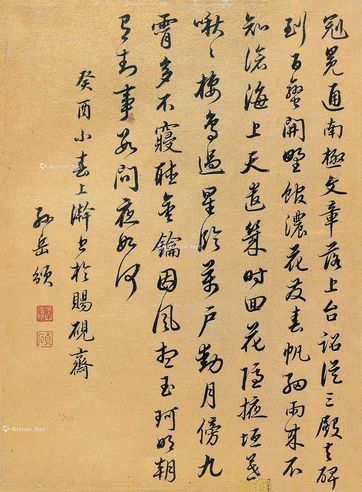 冠冕通南極文章落上台詔從三殿去碑
到百蠻開野館濃花發春帆細雨來不
知滄海上天遣幾時回花隱掖垣暮
啾啾棲鳥過星臨萬户動月傍九
霄多不寢聽金鑰因風想玉珂明朝
有封事數問夜如何
癸酉小春上澣書於賜硯齋
孫岳頒